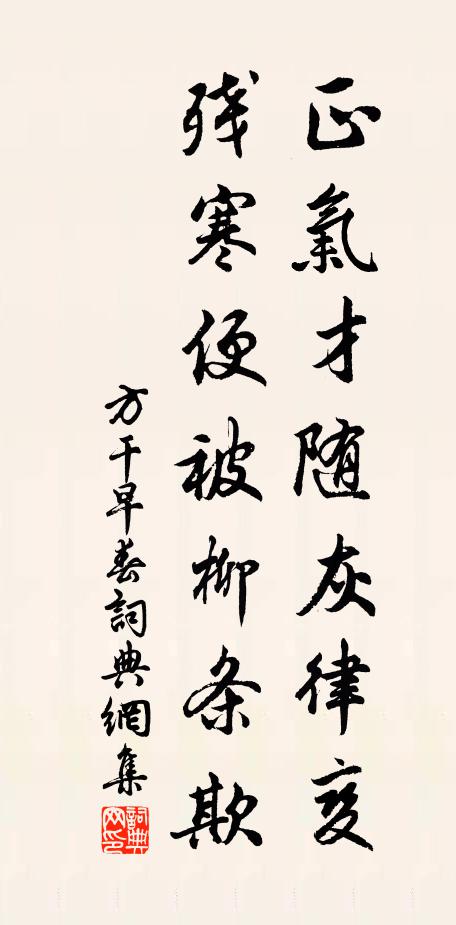 正氣才随灰律变
残寒便被柳条欺
方干早春詞典網集
詞典網印